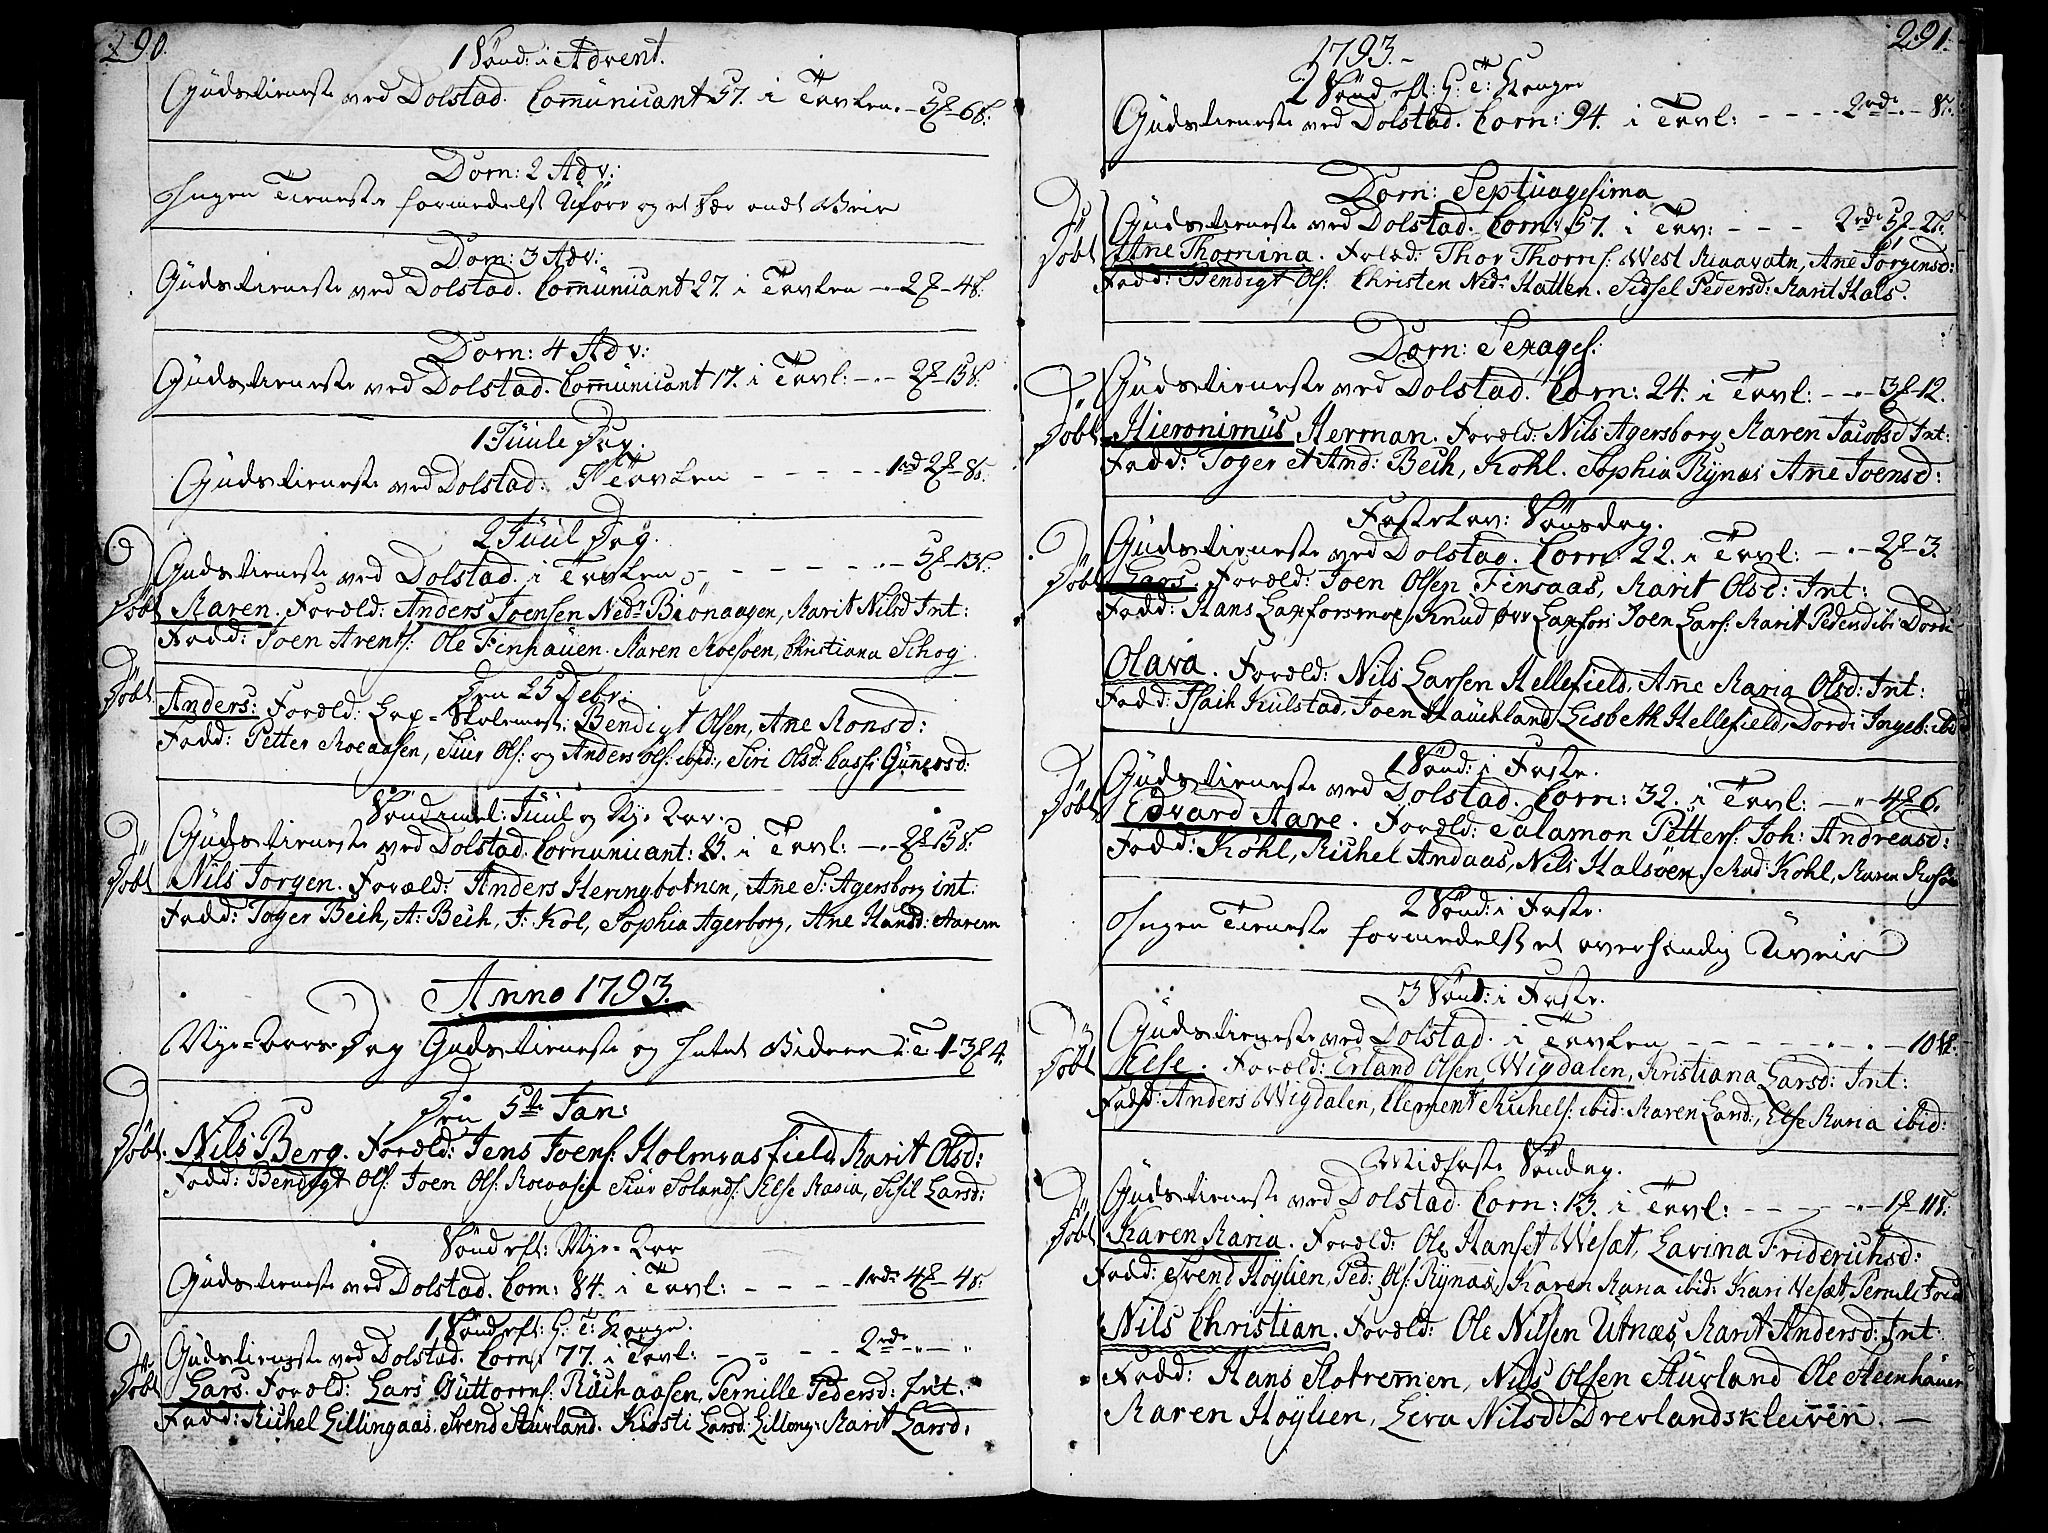 290.
1 Sönd: i Advent.
Gudstieneste ved Dolstad. Communicant 57. i Tavlen. - 5 - 6 s:
Dom: 2 Adv:
Ingen Tieneste formedelst Uföre og et Veir
Dom: 3 Adv:
Gudstieneste ved Dolstad. Communicant 27. i Tavlen - 2 - 4 s.
Dom: 4 Adv:
Gudstieneste ved Dolstad. Communicant 17. i Tavl: - 2 - 13 s:
1 Juule Dag.
Gudstieneste ved Dolstad. I Tavlen - - - - 1 rd 2 - 8 s.
2 Juul Dag.
Gudstieneste ved Dolstad. i Tavlen - - - - - 5 - 13 s.
Döbt Karen. Foræld: Anders Joensen Nedr Biönaagen, Marit Nilsd Int:
Fadd: Joen Arents: Ole Finhauen. Karen Moesöen, Christiana Schog.
Den 25 Debr:
Döbt Anders: Foræld: Bendigt Olsen, Ane Monsd:
Fadd: Petter Moeaasen, Siur Ols: og Anders Ols: ibid:, Siri Olsd: Gunersd:
Sönd: Juul og Ny-Aar.
Gudstieneste ved Dolstad. Communicant: i Tavl: - 2 13 s:
Döbt Nils Jörgen. Foræld: Anders Heringbotnen, Ane S: Agersborg int:
Fadd: Toger Bech, A: Bech, J: Kol, Sophia Agerborg, Ane Hansd: Aarem
Anno 1793.
Nye-Aars Dag Gudstieneste og Intet Videre i T 1 - 3 4.
Den 5te Jan:
Döbt. Nils Berg. Foræld: Jens Joens: Holmaasfield. Marit Olsd:
Fadd: Bendigt Ols: Joen Ols: Moeaasen Siur Else Maria, Sisil Larsd:
Sönd eft: Nye-Aar
Gudstieneste ved Dolstad. Com: 84. i Tavl: - - - 1 rd: 4 - 4 s.
1 Sönd eft: H: T: Konger.
Gudstieneste ved Dolstad. Com: 77. i Tavl: - - - 2 rd
Döbt Lars. Foræld: Lars Guttorms: Pernille Pedersd: Int.
Fadd: Michel Lillingaas. Svend Sturland. Kirsti Larsd: Marit Larsd:
291.
1793.
2 Sönd eft: H: T: Konger
Gudstieneste ved Dolstad. Com: 94. i Tavl: - - - - 2 rd. - 8 s.
Dom: Septuagesima
Gudstieneste ved Dolstad. Com: 57. i Tav: - - - 2 rd 5 - 2 s.
Döbt Ane Thomina. Foræld: Thor Thoms: West Ane Jörgensd:
Fadd: Bendigt Ols: Christen Nedr Hatten. Sidsel Pedersd: Marit Hals.
Dom: Sexages:
Gudstieneste ved Dolstad. Com: 24. i Tavl: - - 3 - 12.
Döbt Hieronimus Herman. Foræld: Nils Agersborg Maren Jacobsd Int:
Fadd: Toger et And: Bech, Kohl. Sophia Rynas Ane Joensd:
Fastelav: Sönsdag.
Gudstieneste ved Dolstad. Com: 22. i Tavl: - 2 - 3.
Döbt Lars. Foræld: Joen Olsen Finsaas, Marit Olsd: Int:
Fadd: Hans Laxforsmoe, Knud övr Laxfors Joen Lars: Marit Pedersd ibi Dordi
Olava. Foræld: Nils Larsen Hellefield, Ane Maria Olsd: Int:
Fadd: Isaik Kulstad, Joen Hauckland Lisbeth Hellefield, Dordi Ingeb: ibid
1 Sönd: i Faste.
Gudstieneste ved Dolstad. Com: 32. i Tavl: - 4 6.
Döbt Edvard Aare. Foræld: Salamon Petters: Joh: Andreasd:
Fadd: Kohl, Michel Andaas, Nils Halsöen, Mad Kohl, Maren
2 Sönd: i Faste.
Ingen Tieneste formedelst et overhændig Uveir
3 Sönd: i Faste.
Gudstieneste ved Dolstad. i Tavlen - - - - - 10 s.
Döbt Else. Foræld: Erland Olsen Wigdalen, Kristiana Larsd: Int:
Fadd: Anders Wigdalen, Clement Michels: ibid: Maren Larsd:, Else Maria ibid:
Midfaste Söndag.
Gudstieneste ved Dolstad. Com: 13. i Tavl: - - - - 1 - 11 s.
Döbt Karen Maria. Foræld: Ole Hanset Wesæt, Lavina Friderichsd:
Fadd: Svend Höylien, Ped: Ols: Rynas, Karen Maria ibid: Kari Vesæt, Pernile
Nils Christian. Foræld: Ole Nilsen Utnæs, Marit Andersd: Int:
Fadd: Hans Slotremen, Nils Olsen Sturland Ole Steenhauen
Maren Höylien, Leva Nilsd: Drevlandskleiven. -